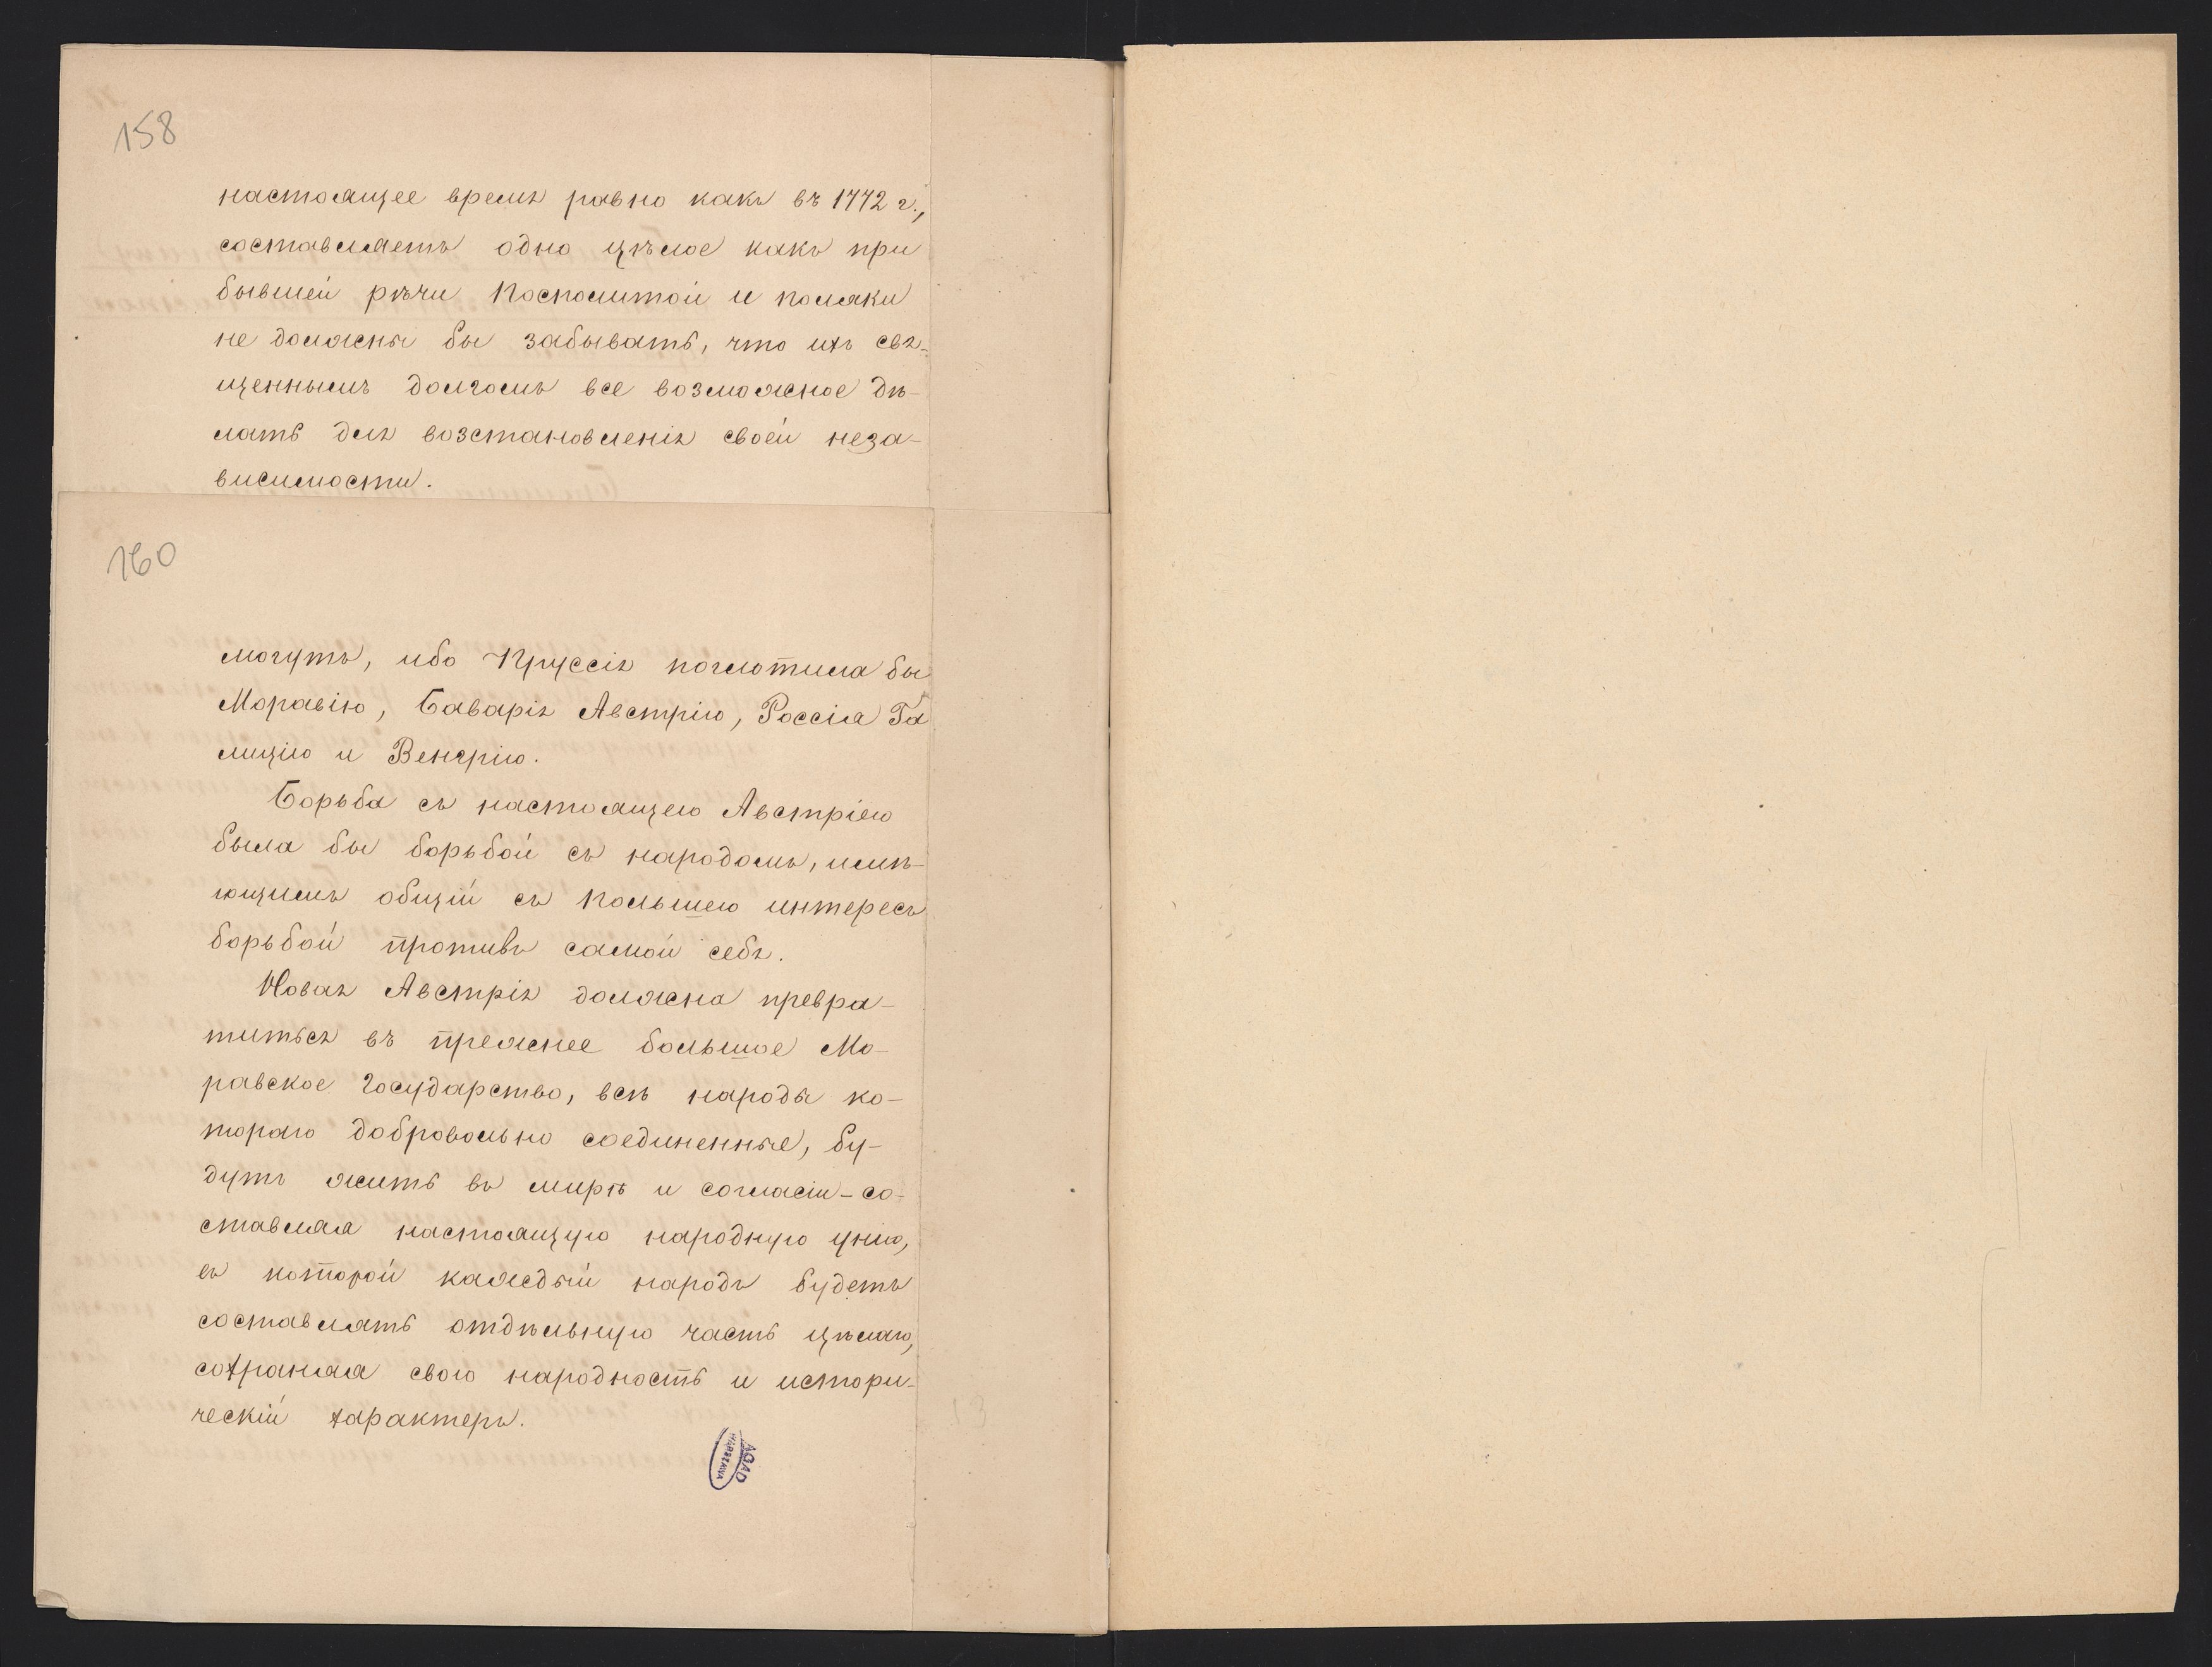 158
настоящее время равно какъ въ 1772 г.,
составляетъ одно цѣлое какъ при
бывшей рѣчи Посполитой и поляки
не должны бы забывать, что ихъ свя-
щеннымъ долгомъ все возможное дѣ-
лать для возстановленія своей неза-
висимости.
160
могутъ, ибо Пруссія поглотила бы
Моравію, Баварія Австрію, Россія Га
лицію и Венгрію.
Борьба съ настоящею Австріею
была бы борьбой съ народомъ, имѣ-
ющимъ общій съ Польшею интересъ
борьбой противъ самой себя.
Новая Австрія должна превра-
титься въ прежнее большое Мо-
равское государство, всѣ народы ко-
тораго добровольно соединенные, бу-
дутъ жить въ мирѣ и согласіи - со-
ставляя настоящую народную унію,
въ которой каждый народъ будетъ
составлять отдѣльную часть цѣлаго,
сохраняя свою народность и истори-
ческій характеръ.
AGAD
WARSZAWA